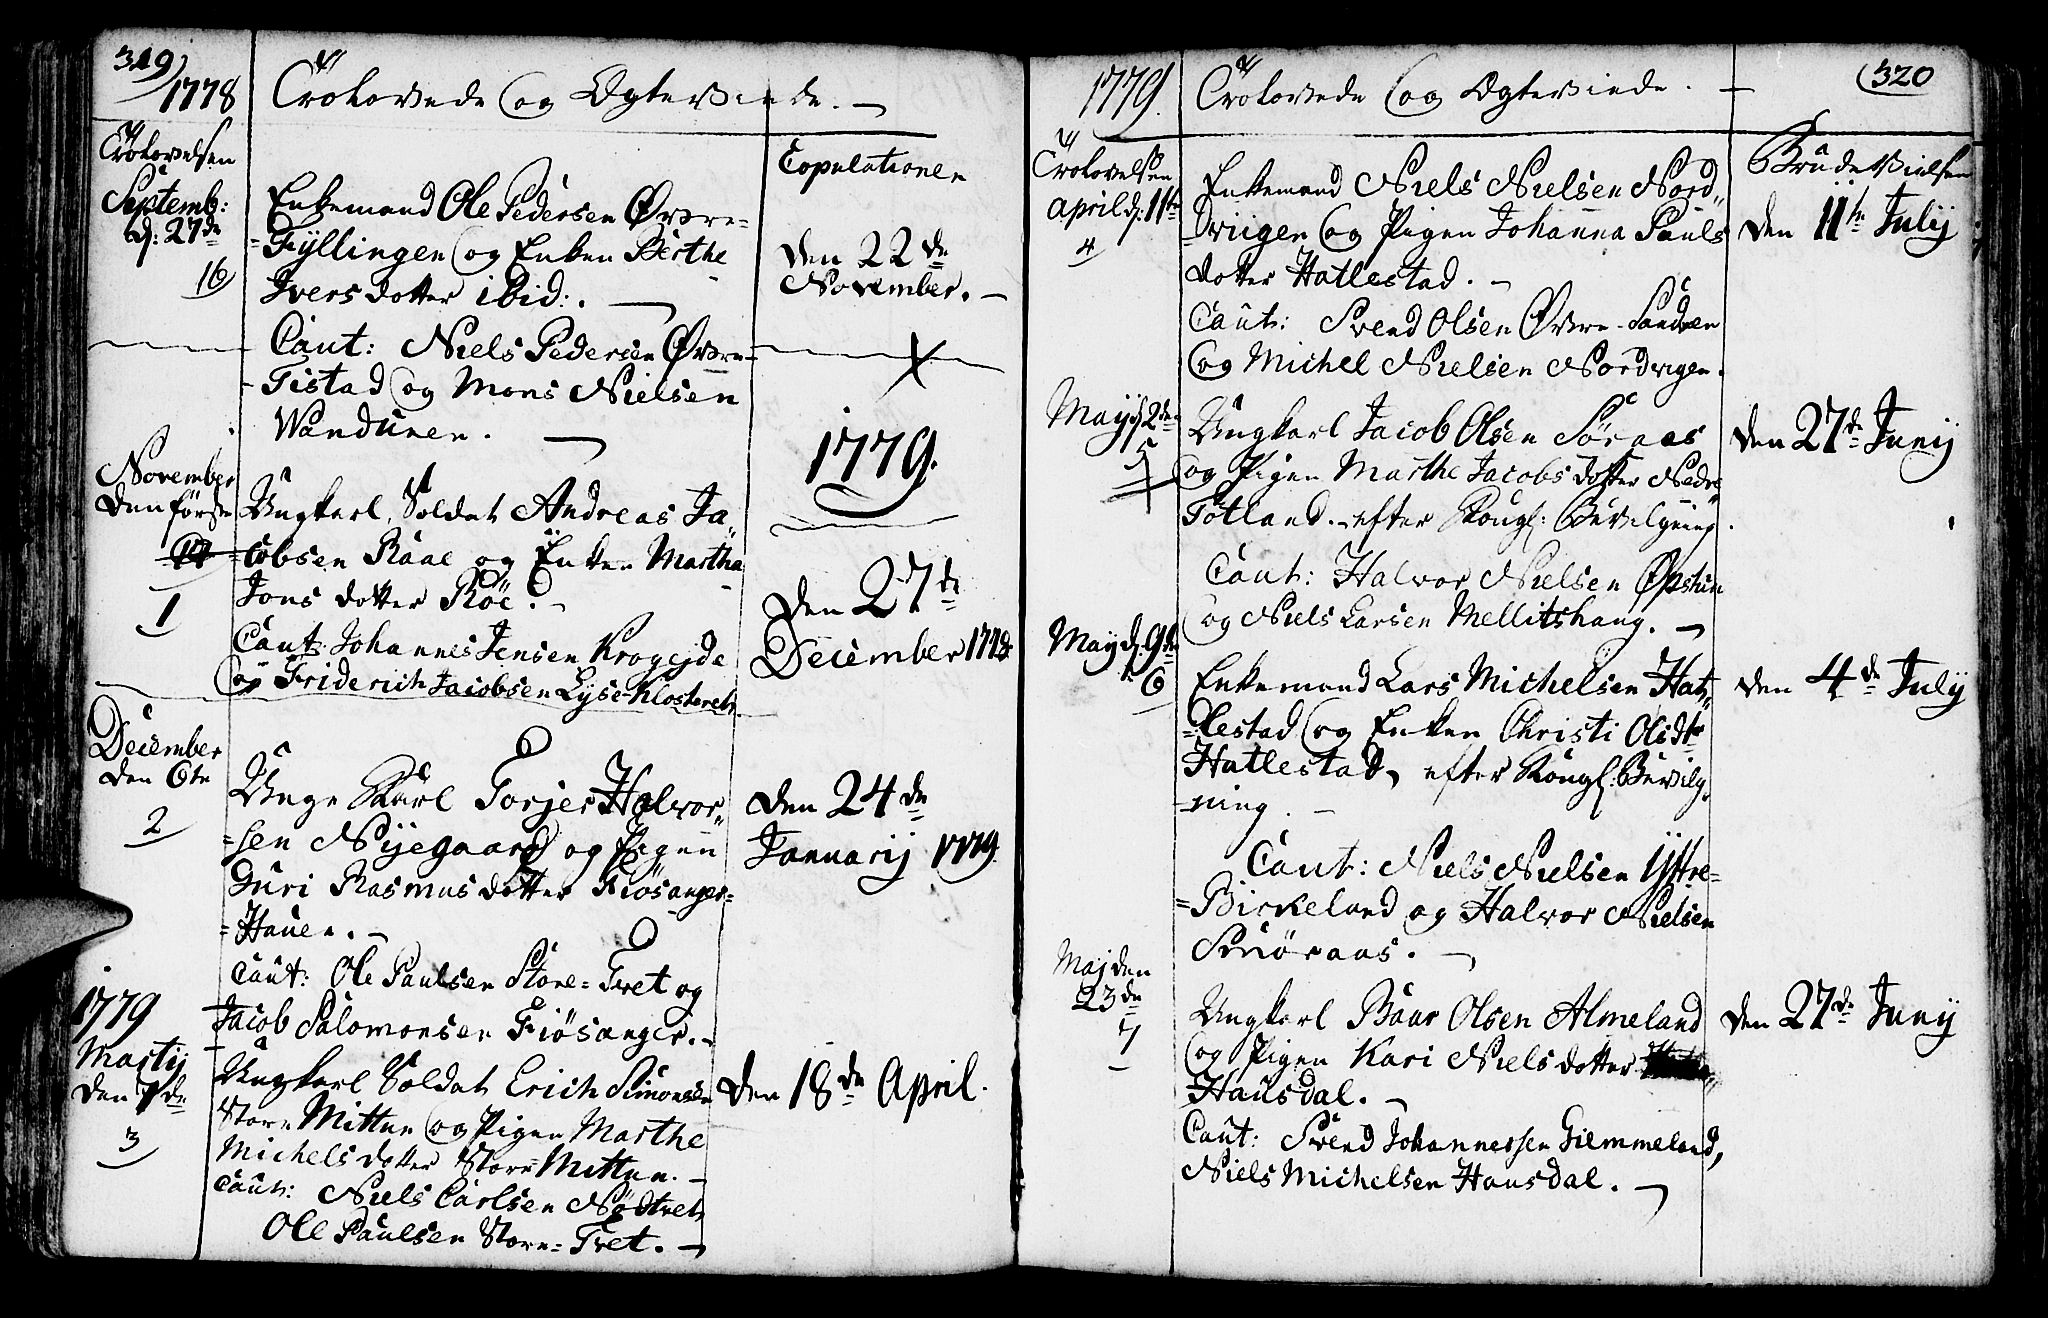 319
1778
Trolovede og Ægteviede. —
Trolovelsen
Septemb:
d: 27de
16
Enkemand Ole Pedersen Øvre=
=Fyllingen og Enken Berthe
Ivers dotter ibid:. —
Caut: Niels Pedersen Øvre=
=Tistad og Mons Nielsen
Wandunen. —
Copulationen
den 22de
November. —
1779.
November
den første
1
Ungkarl, Soldat Andreas Ja=
=cobsen Raae og Enken Martha
Jons dotter Röe. —
Caut: Johannes Jensen Krogejde
og Friderich Jacobsen Lyse-Klosteret.
den 27de
December 1778
December
den 6te
2
Unge Karl Torjer Halvor=
=sen Nijegaard og Pigen
Guri Rasmus dotter Fiösanger=
=Hauen. —
Caut: Ole Paulsen Store=Tvet og
Jacob Salomonsen Fiösanger. —
den 24de
Januarij 1779.
1779
Martij
den 7de
3
Ungkarl Soldat Erich Simonsen
Store Mittun og Pigen Marthe
Michels dotter Store Mittun. —
Caut: Niels Carlsen Nödtvet
Ole Paulsen Store=Tvet. —
den 18de April.
320
1779.
Trolovede og Ægteviede. —
Trolovelsen
april d: 11te
4
Enkemand Niels Nielsen Nord=
=vigen og Pigen Johanna Pauls
dotter Hatlestad. —
Caut: Svend Olsen Øvre-Sandven
og Michel Nielsen Nordvigen.
Brudevielsen
den 11te July
May d. 2den
5
Ungkarl Jacob Olsen Söraas
og Pigen Marthe Jacobs dotter Nedre
Totland. efter Kongl: Bevilgning.
Caut: Halvor Nielsen Øvsthun
og Niels Larsen Mellitshaug. —
den 27de Junij
May d. 9de
6
Enkemand Lars Michelsen Hat=
=lestad og Enken Christi Olsdtr
Hatlestad, efter Kongl: Bevilg=
=ning. —
Caut: Niels Nielsen Yttre=
=Birkeland og Halvor Nielsen
Smöraas. —
den 4de July
Maj den
23de
7
Ungkarl Baar Olsen Almeland
og Pigen Kari Niels dotter
Hausdal. —
Caut: Svend Johannessen Giemmeland,
Niels Michelsen Hausdal. —
den 27de Junij